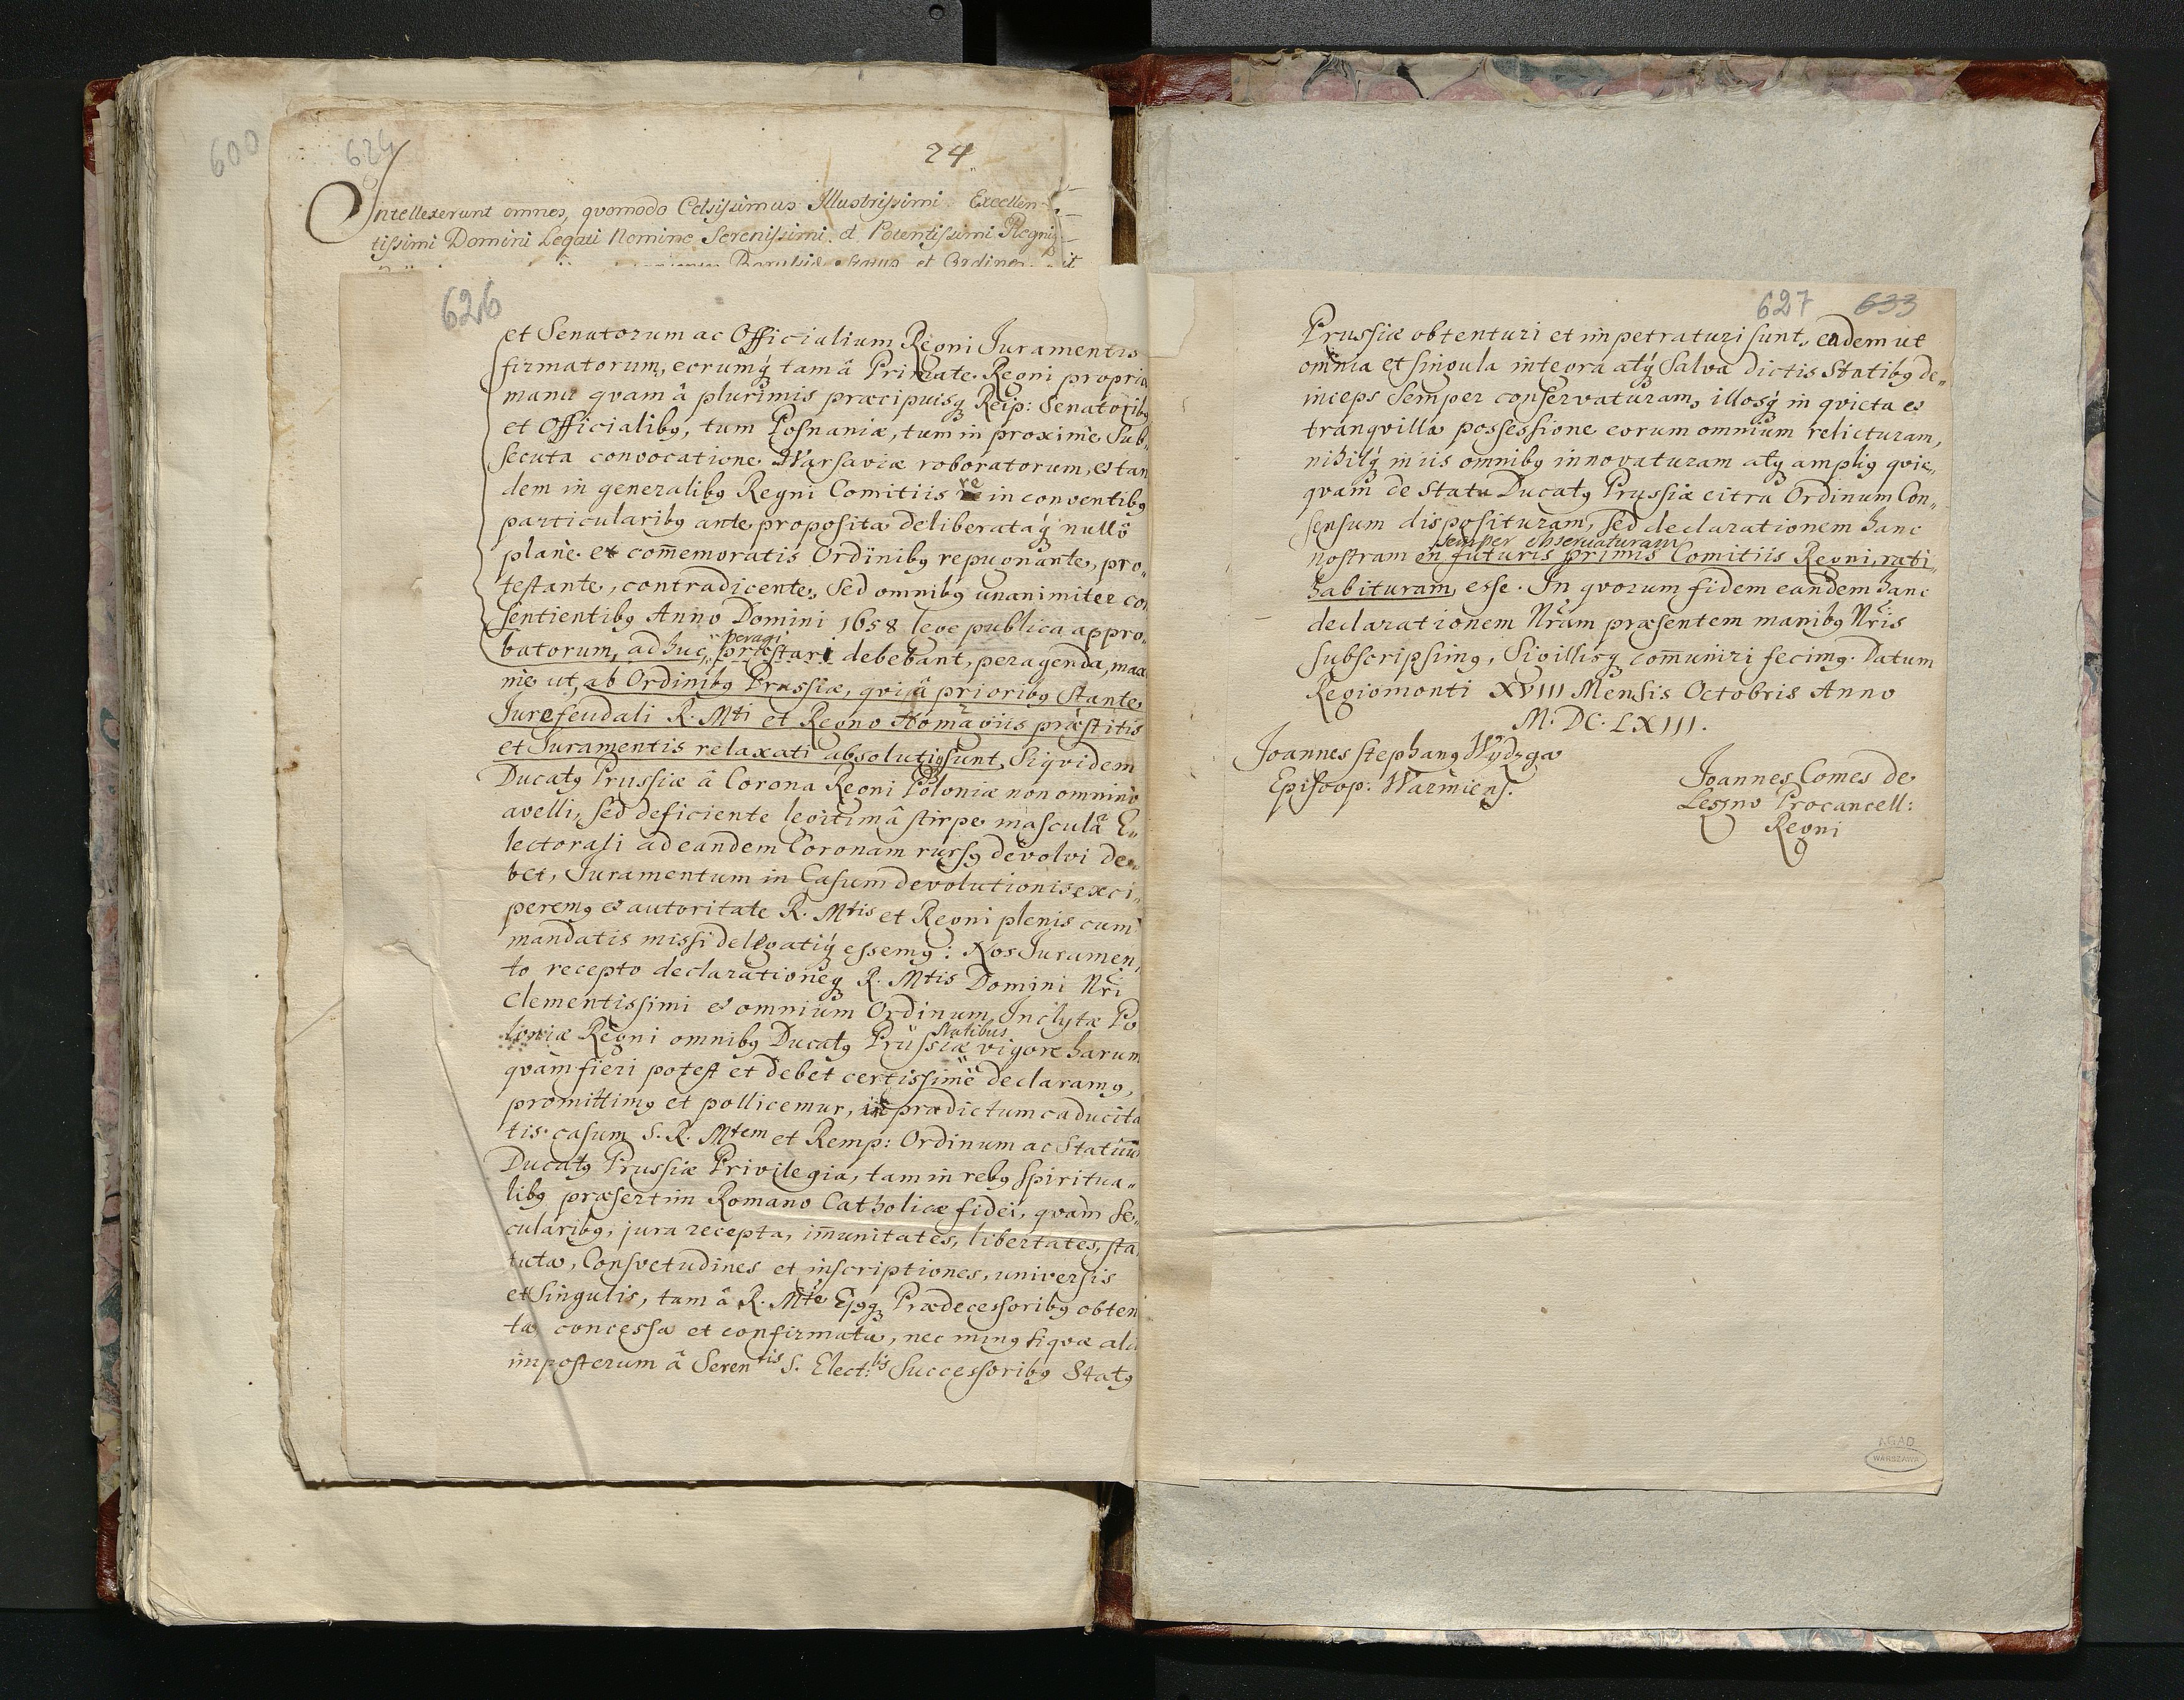 600
624
24
Intellexerunt omnes, qvomodo Celsissimus Illustrissimi Excellen-
tissimi Domini Legati Nomine Serenissimi et Potentissimi Regni
Status et Ordines
626
et Senatorum ac Officialium Regni Juramentis
firmatorum, eorumq́ tam â Primate Regni propria
manu qvam â plurimis præcipuisq Reip: Senatoribꝰ
et Officialibꝰ, tum Posnaniæ, tum in proxime Sub-
secuta convocatione Warsaviæ roboratorum, et tan
dem in generalibꝰ Regni Comitiis re in conventibꝰ
particularibꝰ ante proposita deliberataq́ nullo
plane ex comemoratis Ordinibꝰ repugnante, pro-
testante, contradicente, Sed omnibꝰ unanimiter con
sentientibꝰ Anno Domini 1658 lege publica appro-
peragi
batorum, adhuc præstari debebant, peragenda, max
me ut, ab Ordinibꝰ Prussiæ, qvi â prioribꝰ Stante
Jure feudali R. Mti et Regno Homagiis præstitis
et Juramentis relaxati absolutiqꝫ sunt, Siqvidem
Ducatꝰ Prussiæ â Corona Regni Poloniæ non omnino
avelli, Sed deficiente legitimâ stirpe masculâ E-
lectorali ad eandem Coronam rursꝰ devolvi de-
bet, Juramentum in Casum devolutionis exci-
peremꝰ et autoritate R. Mtis et Regni plenis cum
mandatis missi delegatiq́ essemꝰ: Nos Juramen
to recepto declarationeq R. Mtis Domini Nri
Clementissimi et omnium Ordinum Inclytæ Po
Statibus
loniæ Regni omnibꝰ Ducatꝰ Prussiæ vigore harum
qvam fieri potest et debet certissime declaramꝰ,
promittimꝰ et pollicemur, in prædictum caducita
tis casum S. R. Mtem et Remp: Ordinum ac Statuum
Ducatꝰ Prussiæ Privilegia, tam in rebꝰ Spiritua-
libꝰ præsertim Romano Catholicæ fidei, qvam Se-
cularibꝰ, jura recepta, im̄unitates, libertates, sta
tuta, Consvetudines et inscriptiones, universis
et Singulis, tam â R. Mte Ejꝰq Prædecessoribꝰ obten
ta concessa et confirmata, nec minꝰ siqvæ alia
imposterum â Seren tis S. Elect: lis Successoribꝰ Statꝰ
627 633
Prussiæ obtenturi et impetraturi sunt, eadem ut
omnia et singula integra atq́ Salva dictis Statibꝰ de-
inceps Semper conservaturam, illosq́ in qvieta et
tranqvilla possessione eorum omnium relicturam,
nihilq́ in iis omnibꝰ innovaturam atq ampliꝰ qvic-
qvam de Statu Ducatꝰ Prussiæ citra Ordinum Con-
sensum disposituram, sed declarationem hanc
semper observaturam
nostram in futuris primis Comitiis Regni, rati-
habituram, esse. In qvorum fidem eandem hanc
declarationem Nram præsentem manibꝰ Nris
subscripsimꝰ, Sigillisq com̄uniri fecimꝰ. Datum
Regiomonti XVIII Mensis Octobris Anno
M. DC. LXIII.
Joannes Stephanꝰ Wydzga
Episcop: Warmiens.
Joannes Comes de
Lesno Procancell:
Regni
AGAD
WARSZAWA